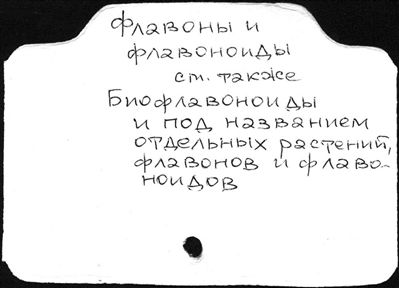 Флавоны и
флавоноиды
см. также
Биофлавоноиды
и под названием
отдельных растений,
флавонов и флаво-
ноидов